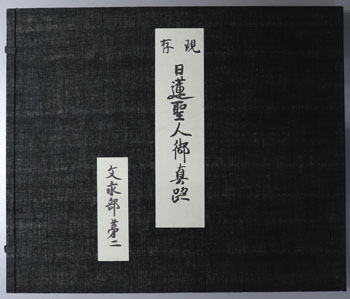 現存
日蓮聖人御真蹟
文永部第二